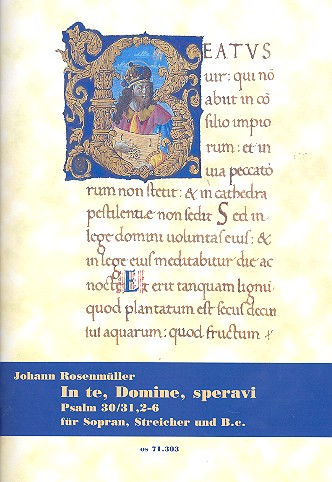 BEATVS
uir: qui nō
abiit in cō
silio impio
rum: et in
uia peccato
rum non stetit: & in cathedra
pestilentiae non sedit Sed in
lege domini uoluntas eius: &
in lege eius meditabitur die ac
nocte Et erit tanquam lignū
quod plantatum est secus decur
sus aquarum: quod fructum
Johann Rosenmüller
In te, Domine, speravi
Psalm 30/31,2-6
für Sopran, Streicher und B.c.
os 71.303